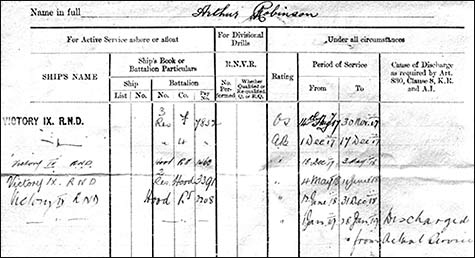 Name in full Arthur Robinson
For Active Service ashore or afloat For Divisional Drills Under all circumstances
SHIP'S NAME Ship's Book or Battalion Particulars R.N.V.R. Rating Period of Service Cause of Discharge as required by Art. 830, Clause 8, K.R. and A.I.
Ship Battalion No. Performed Whether Qualified or Re-qualified Q. or R.Q. From To
List No. No. Co. Pay No.
VICTORY IX. R.N.D. 3 Res 7852 OS 17 30 Nov 17
" " " AB 1 Dec 17 17 Dec 17
Victory R.N.D. Hood " 18 Dec 17
Victory IX R.N.D 2 Res Hood " 4 May 18 June 18
Victory R.N.D Hood " June 18 31 Dec 18
" 1 Jan 19 28 Jan 19 Discharged
" from Actual Service